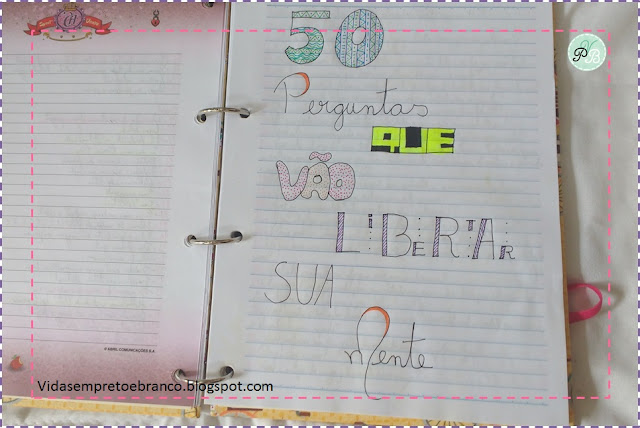 50
Perguntas
QUE
VÃO
LIBERTAR
SUA
Mente
PB
© ABRIL COMUNICAÇÕES S.A.
Vidasempretoebranco.blogspot.com